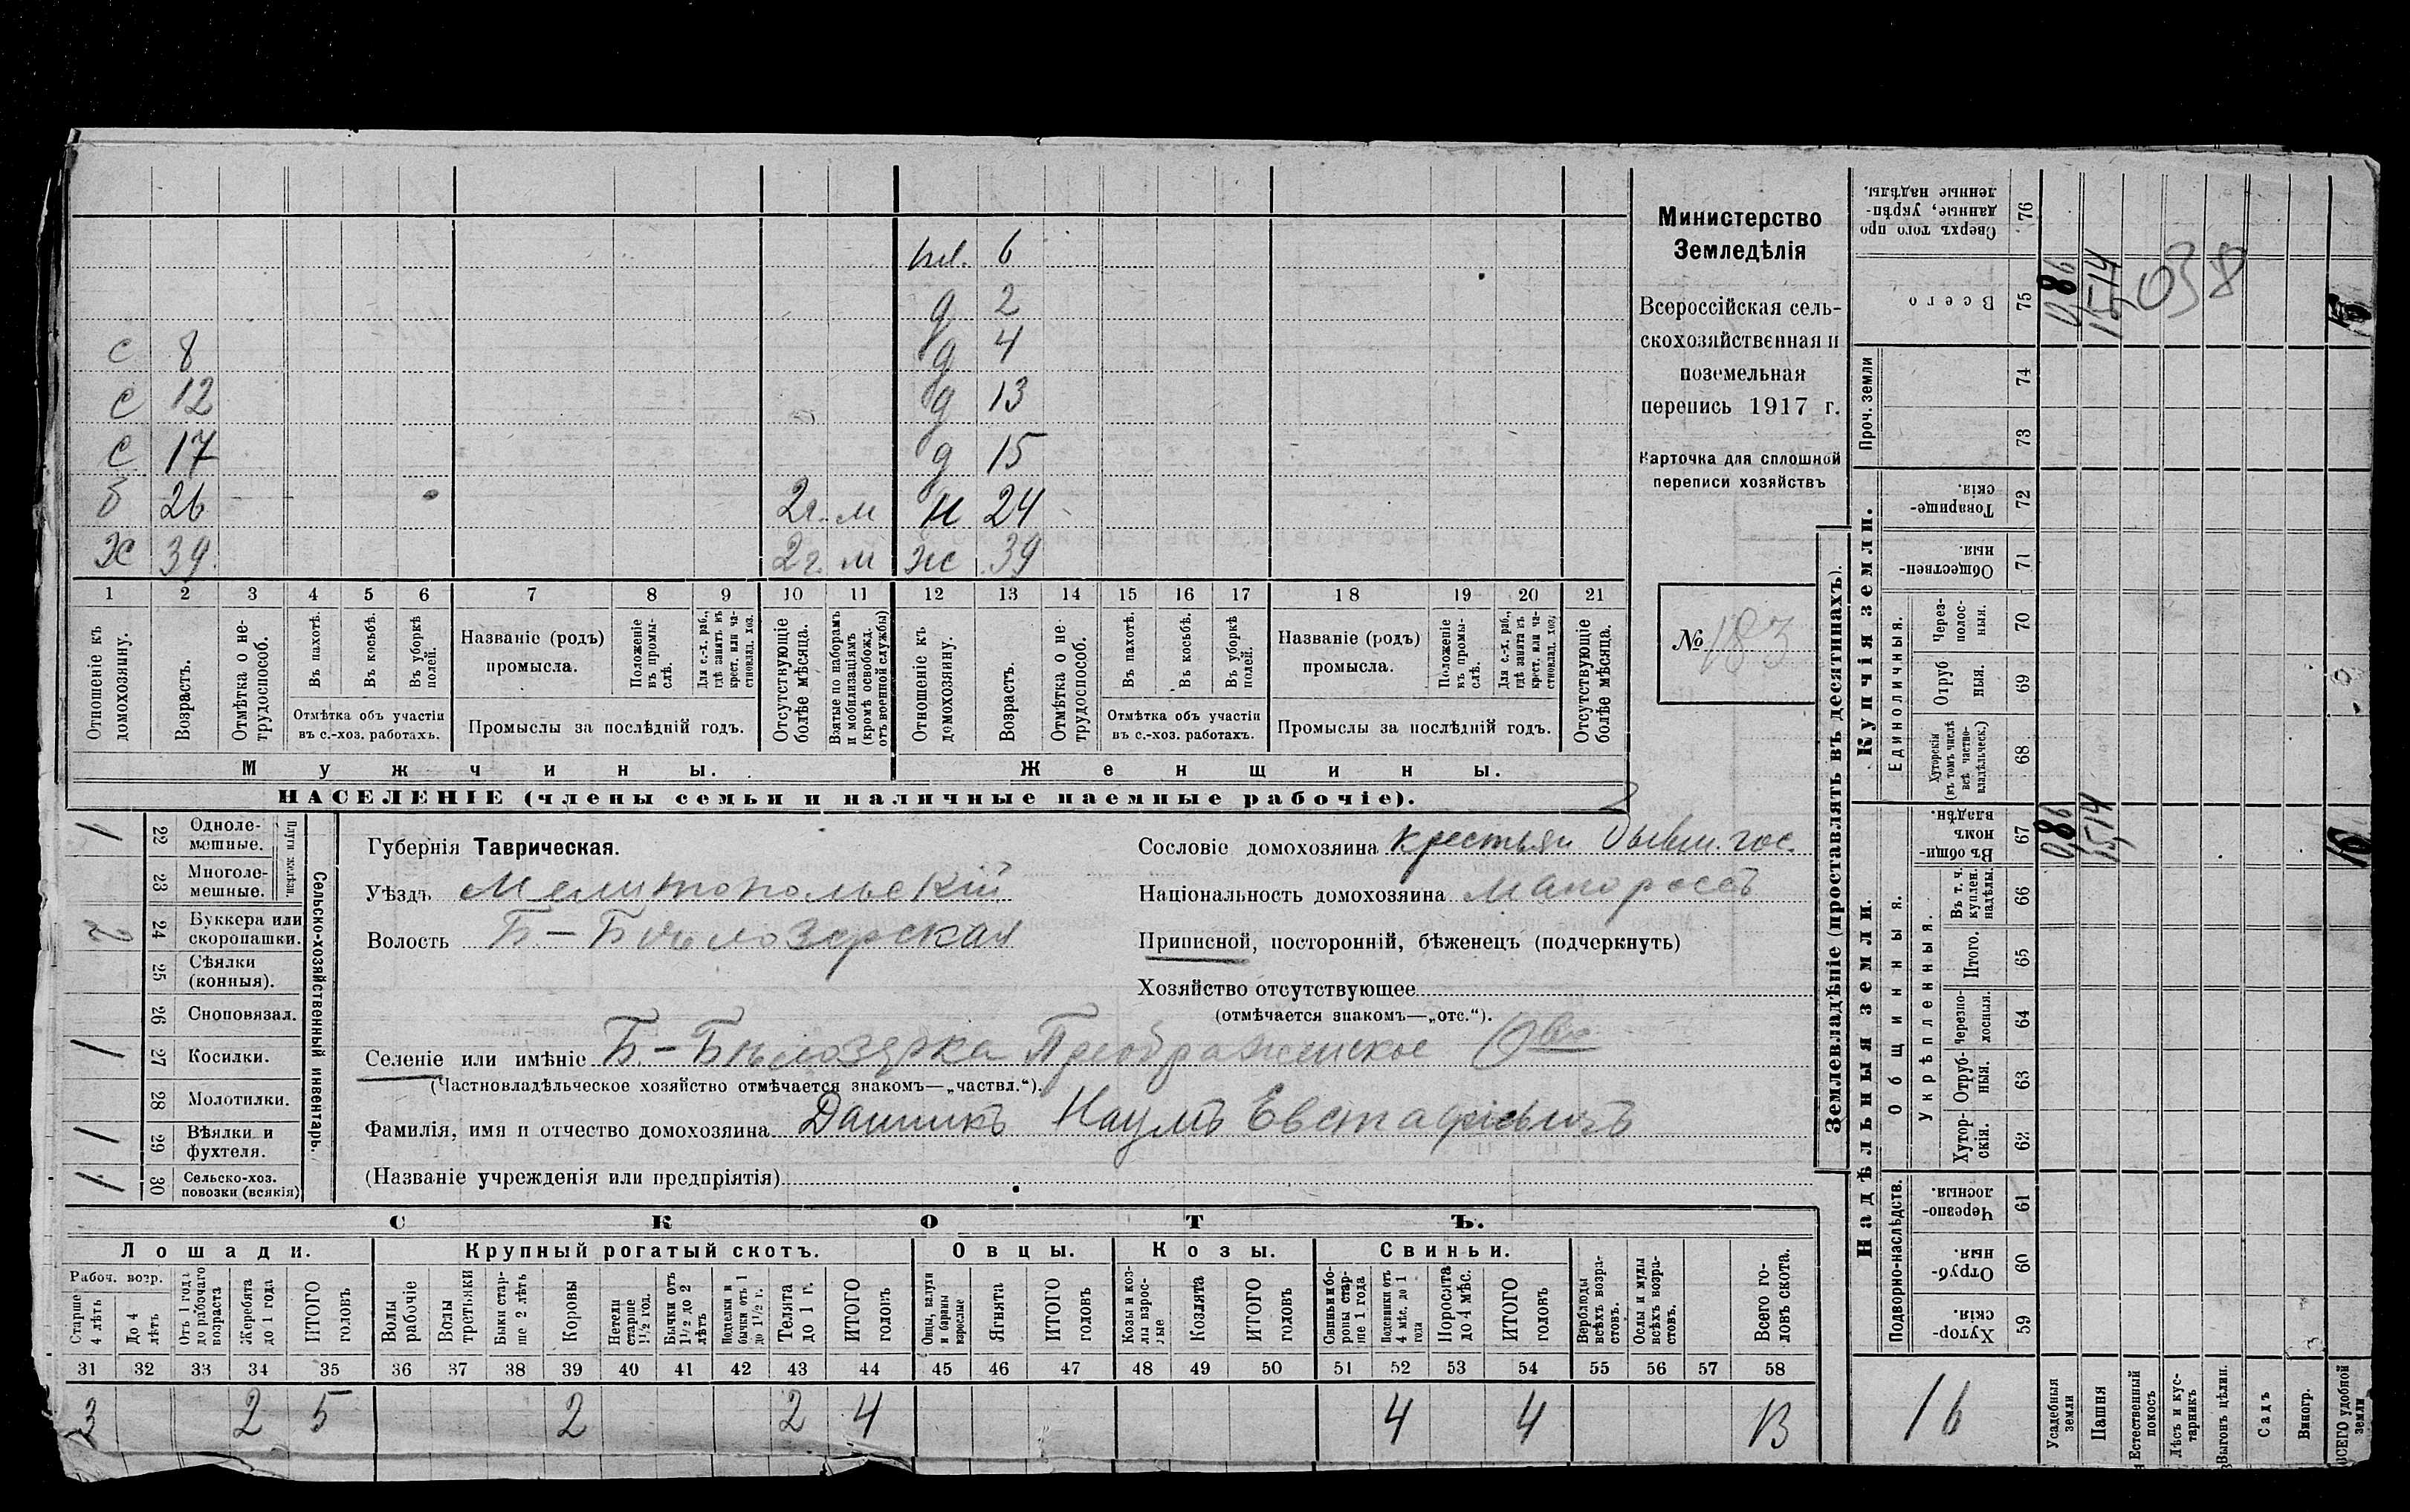 пл. 6
д 2
с 8 д 4
с 12 д 13
с 17 д 15
б 26 2г. м н 24
х 39 2г. м ж 39
1 2 3 4 5 6 7 8 9 10 11 12 13 14 15 16 17 18 19 20 21
Отношеніе къ домохозяину.
Возрастъ.
Отмѣтка о не-
трудоспособ.
Въ пахотѣ.
Въ косьбѣ.
Въ уборкѣ
полей.
Отмѣтка объ участіи
въ с.-хоз. работахъ.
Названіе (родъ)
промысла.
Положеніе
въ промы-
слѣ.
Для с.-х. раб.,
гдѣ занятъ въ
крест. или ча-
стновлад. хоз.
Промыслы за послѣдній годъ.
Отсутствующіе
болѣе мѣсяца.
Взятые по наборамъ
и мобилизаціямъ
(кромѣ освобожд.
отъ военной службы)
Отношеніе къ
домохозяину.
Возрастъ.
Отмѣтка о не
трудоспособ.
Въ пахотѣ.
Въ косьбѣ.
Въ уборкѣ
полей.
Отмѣтка объ участіи
въ с.-хоз. работахъ.
Названіе (родъ)
промысла.
Положеніе
въ промы-
слѣ.
Для с.-х. раб.,
гдѣ занята въ
крест. или ча-
стновлад. хоз,
Промыслы за послѣдній годъ.
Отсутствующіе
болѣе мѣсяца.
Мужчины.
Женщины.
НАСЕЛЕНІЕ (члены семьи и наличные наемные рабочіе).
Министерство
Земледѣлія
Всероссійская сель-
скохозяйственная и
поземельная
перепись 1917 г.
Карточка для сплошной
переписи хозяйствъ
№ 183
Сельско-хозяйственный инвентарь.
Плуги желѣзн.
1 22 Одноле-
мешные.
23 Многоле-
мешные.
2 24 Буккера или
скоропашки.
25 Сѣялки
(конныя).
26 Сноповязал.
1 27 Косилки.
28 Молотилки.
1 29 Вѣялки и
фухтеля.
1 30 Сельско-хоз.
повозки (всякія)
Губернія Таврическая.
Уѣздъ Мелитопольскій
Волость Б-Бѣлозерская
Сословіе домохозяина крестьян бывш. гос.
Національность домохозяина малороссъ
Приписной, посторонній, бѣженецъ (подчеркнуть)
Хозяйство отсутствующее
(отмѣчается знакомъ—„отс.“).
Селеніе или имѣніе Б.-Бѣлозерка Преображенское О-во
(Частновладѣльческое хозяйство отмѣчается знакомъ—„частвл.“).
Фамилія, имя и отчество домохозяина Дашикъ Наумъ Евстафіевичъ
(Названіе учрежденія или предпріятія)
СКОТЪ.
Лошади. Крупный рогатый скотъ. Овцы. Козы. Свиньи.
Рабоч. возр.
Старше
4 лѣтъ
До 4
лѣтъ
Отъ 1 года
до рабочаго
возраста
Жеребята
до 1 года
ИТОГО
головъ
Волы
рабочіе
Волы
третьяки
Быки стар-
ше 2 лѣтъ
Коровы
Нетели
старше
1½ год.
Бычки отъ
1½ до 2
лѣтъ
Подтелки и
бычки отъ 1
до 1½ г.
Телята
до 1 г.
ИТОГО
головъ
Овцы, валухи
и бараны
взрослые
Ягнята
ИТОГО
головъ
Козы и коз-
лы взрос-
лые
Козлята
ИТОГО
головъ
Свиньи и бо-
ровы стар-
ше 1 года
Подсвинки отъ
4 мѣс. до 1
года
Поросята
до 4 мѣс.
ИТОГО
головъ
Верблюды
всѣхъ возра-
стовъ.
Ослы и мулы
всѣхъ возра-
стовъ.
Всего го-
ловъ скота.
31 32 33 34 35 36 37 38 39 40 41 42 43 44 45 46 47 48 49 50 51 52 53 54 55 56 57 58
3 2 5 2 2 4 4 4 13
Землевладѣніе (проставлять въ десятинахъ).
Надѣльныя земли.
Купчія земли.
Проч. земли
Подворно-наслѣдств.
Общинныя.
Укрѣпленныя.
Единоличныя.
Сверхъ того про
данные, укрѣп-
ленные надѣлы.
76
Всего
75
74
73
Товарище-
скія.
72
Обществен-
ныя.
71
Через-
полос-
ныя.
70
Отруб
ныя.
69
Хуторскія
(въ томъ числѣ
всѣ частно-
владѣльческ.)
68
Въ общи
номъ
владѣн.
67
Въ т. ч.
куплен.
надѣлы.
66
Итого.
65
Черезпо-
лосныя.
64
Отруб-
ныя.
63
Хутор-
скія.
62
Черезпо-
лосныя.
61
Отруб-
ныя.
60
Хутор-
скія.
59
0,86 15,14 038
0,86 15,14 16
16
Усадебныя
земли
Пашня
Естественный
покосъ
Лѣсъ и кус-
тарникъ
Выгонъ цѣлин.
Садъ
Виногр.
ВСЕГО удобной
земли